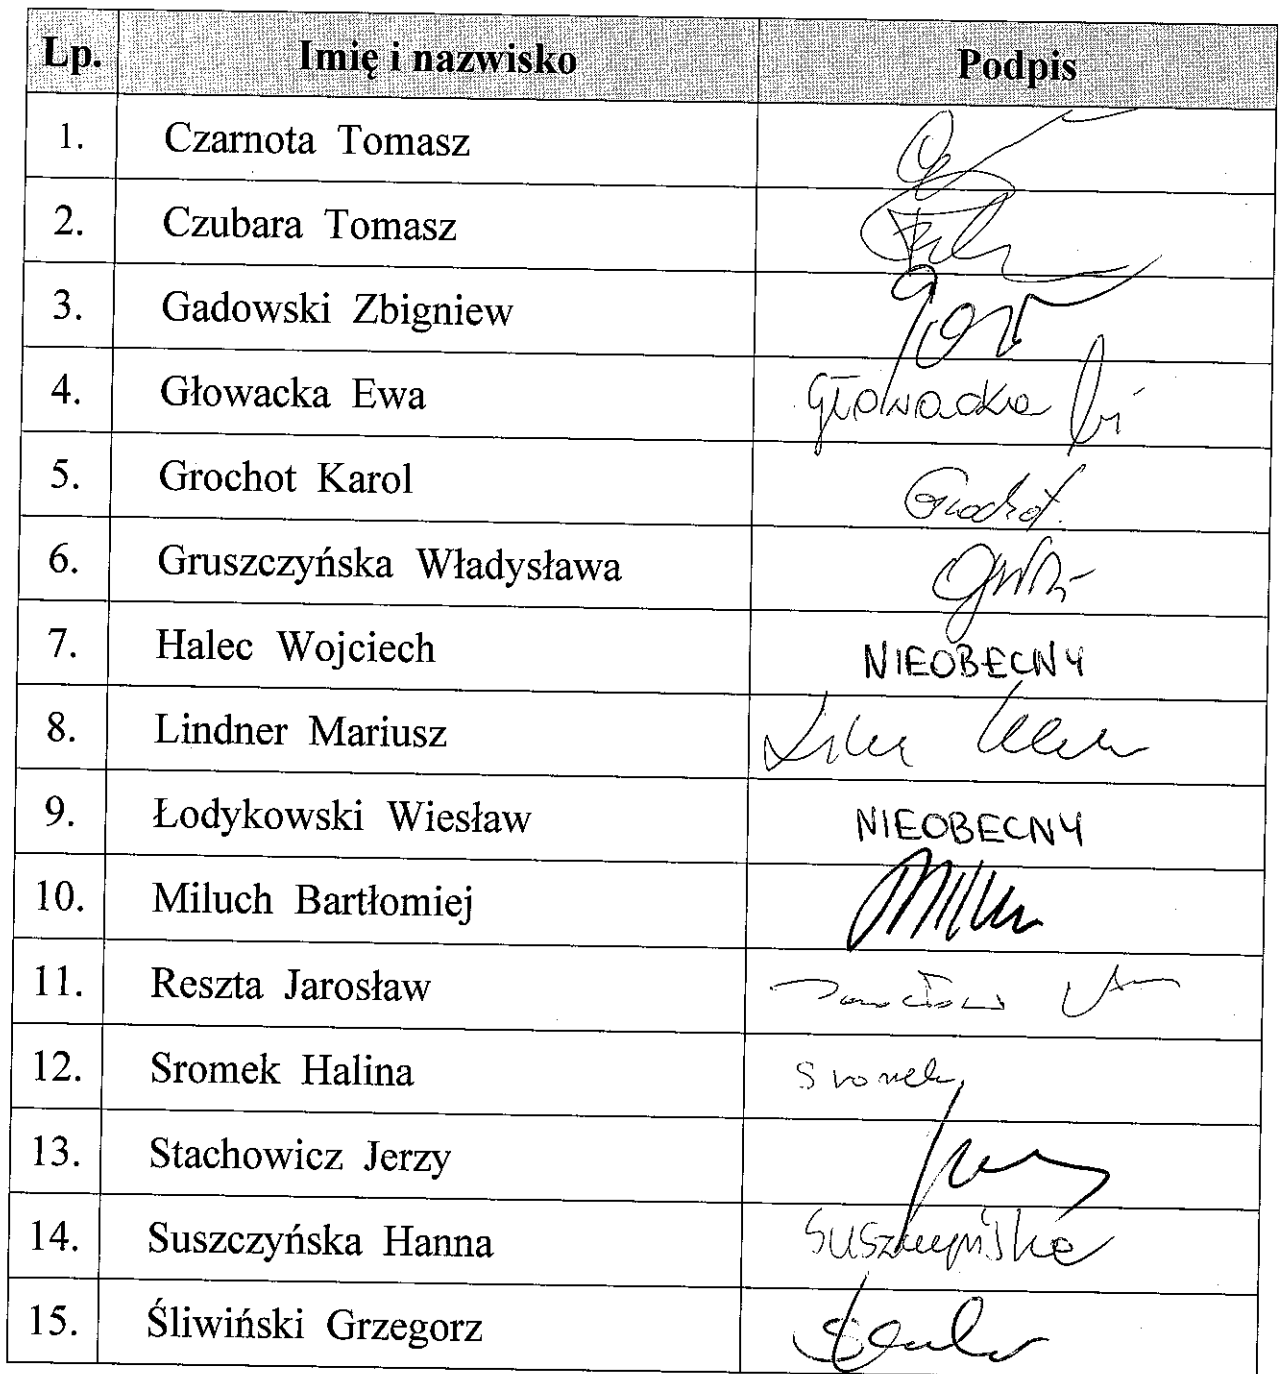 Lp. Imię i nazwisko Podpis
1. Czarnota Tomasz
2. Czubara Tomasz
3. Gadowski Zbigniew
4. Głowacka Ewa Głowacka
5. Grochot Karol Grochot
6. Gruszczyńska Władysława
7. Halec Wojciech NIEOBECNY
8. Lindner Mariusz
9. Łodykowski Wiesław NIEOBECNY
10. Miluch Bartłomiej
11. Reszta Jarosław
12. Sromek Halina Sromek
13. Stachowicz Jerzy
14. Suszczyńska Hanna Suszczyńska
15. Śliwiński Grzegorz